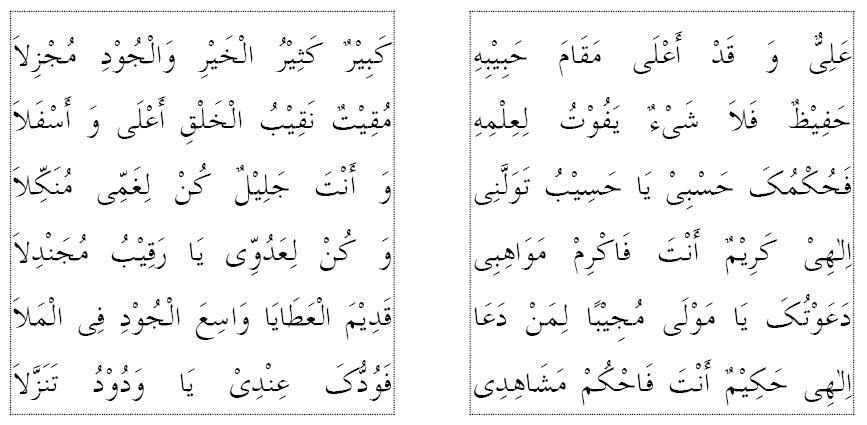 عَلِىٌّ وَ قَدْ أَعْلَى مَقَامَ حَبِيْبِهِ كَبِيْرٌ كَثِيْرُ الْخَيْرِ وَالْجُوْدِ مُجْزِلاَ
حَفِيْظٌ فَلاَ شَىْءٌ يَفُوْتُ لِعِلْمِهِ مُقِيْتٌ نَقِيْبُ الْخَلْقِ أَعْلَى وَ أَسْفَلاَ
فَحُكْمُکَ حَسْبِىْ يَا حَسِيْبُ تَوَلَّنِى وَ أَنْتَ جَلِيْلٌ كُنْ لِغَمِّى مُنَكِّلاَ
اِلٰهِىْ كَرِيْمٌ أَنْتَ فَاكْرِمْ مَوَاهِبِى وَ كُنْ لِعَدُوِّى يَا رَقِيْبُ مُجَنْدِلاَ
دَعَوْتُکَ يَا مَوْلَى مُجِيْبًا لِمَنْ دَعَا قَدِيْمَ الْعَطَايَا وَاسِعَ الْجُوْدِ فِى الْمَلاَ
اِلٰهِى حَكِيْمٌ أَنْتَ فَاحْكُمْ مَشَاهِدِى فَوُدُّکَ عِنْدِىْ يَا وَدُوْدُ تَنَزَّلاَ